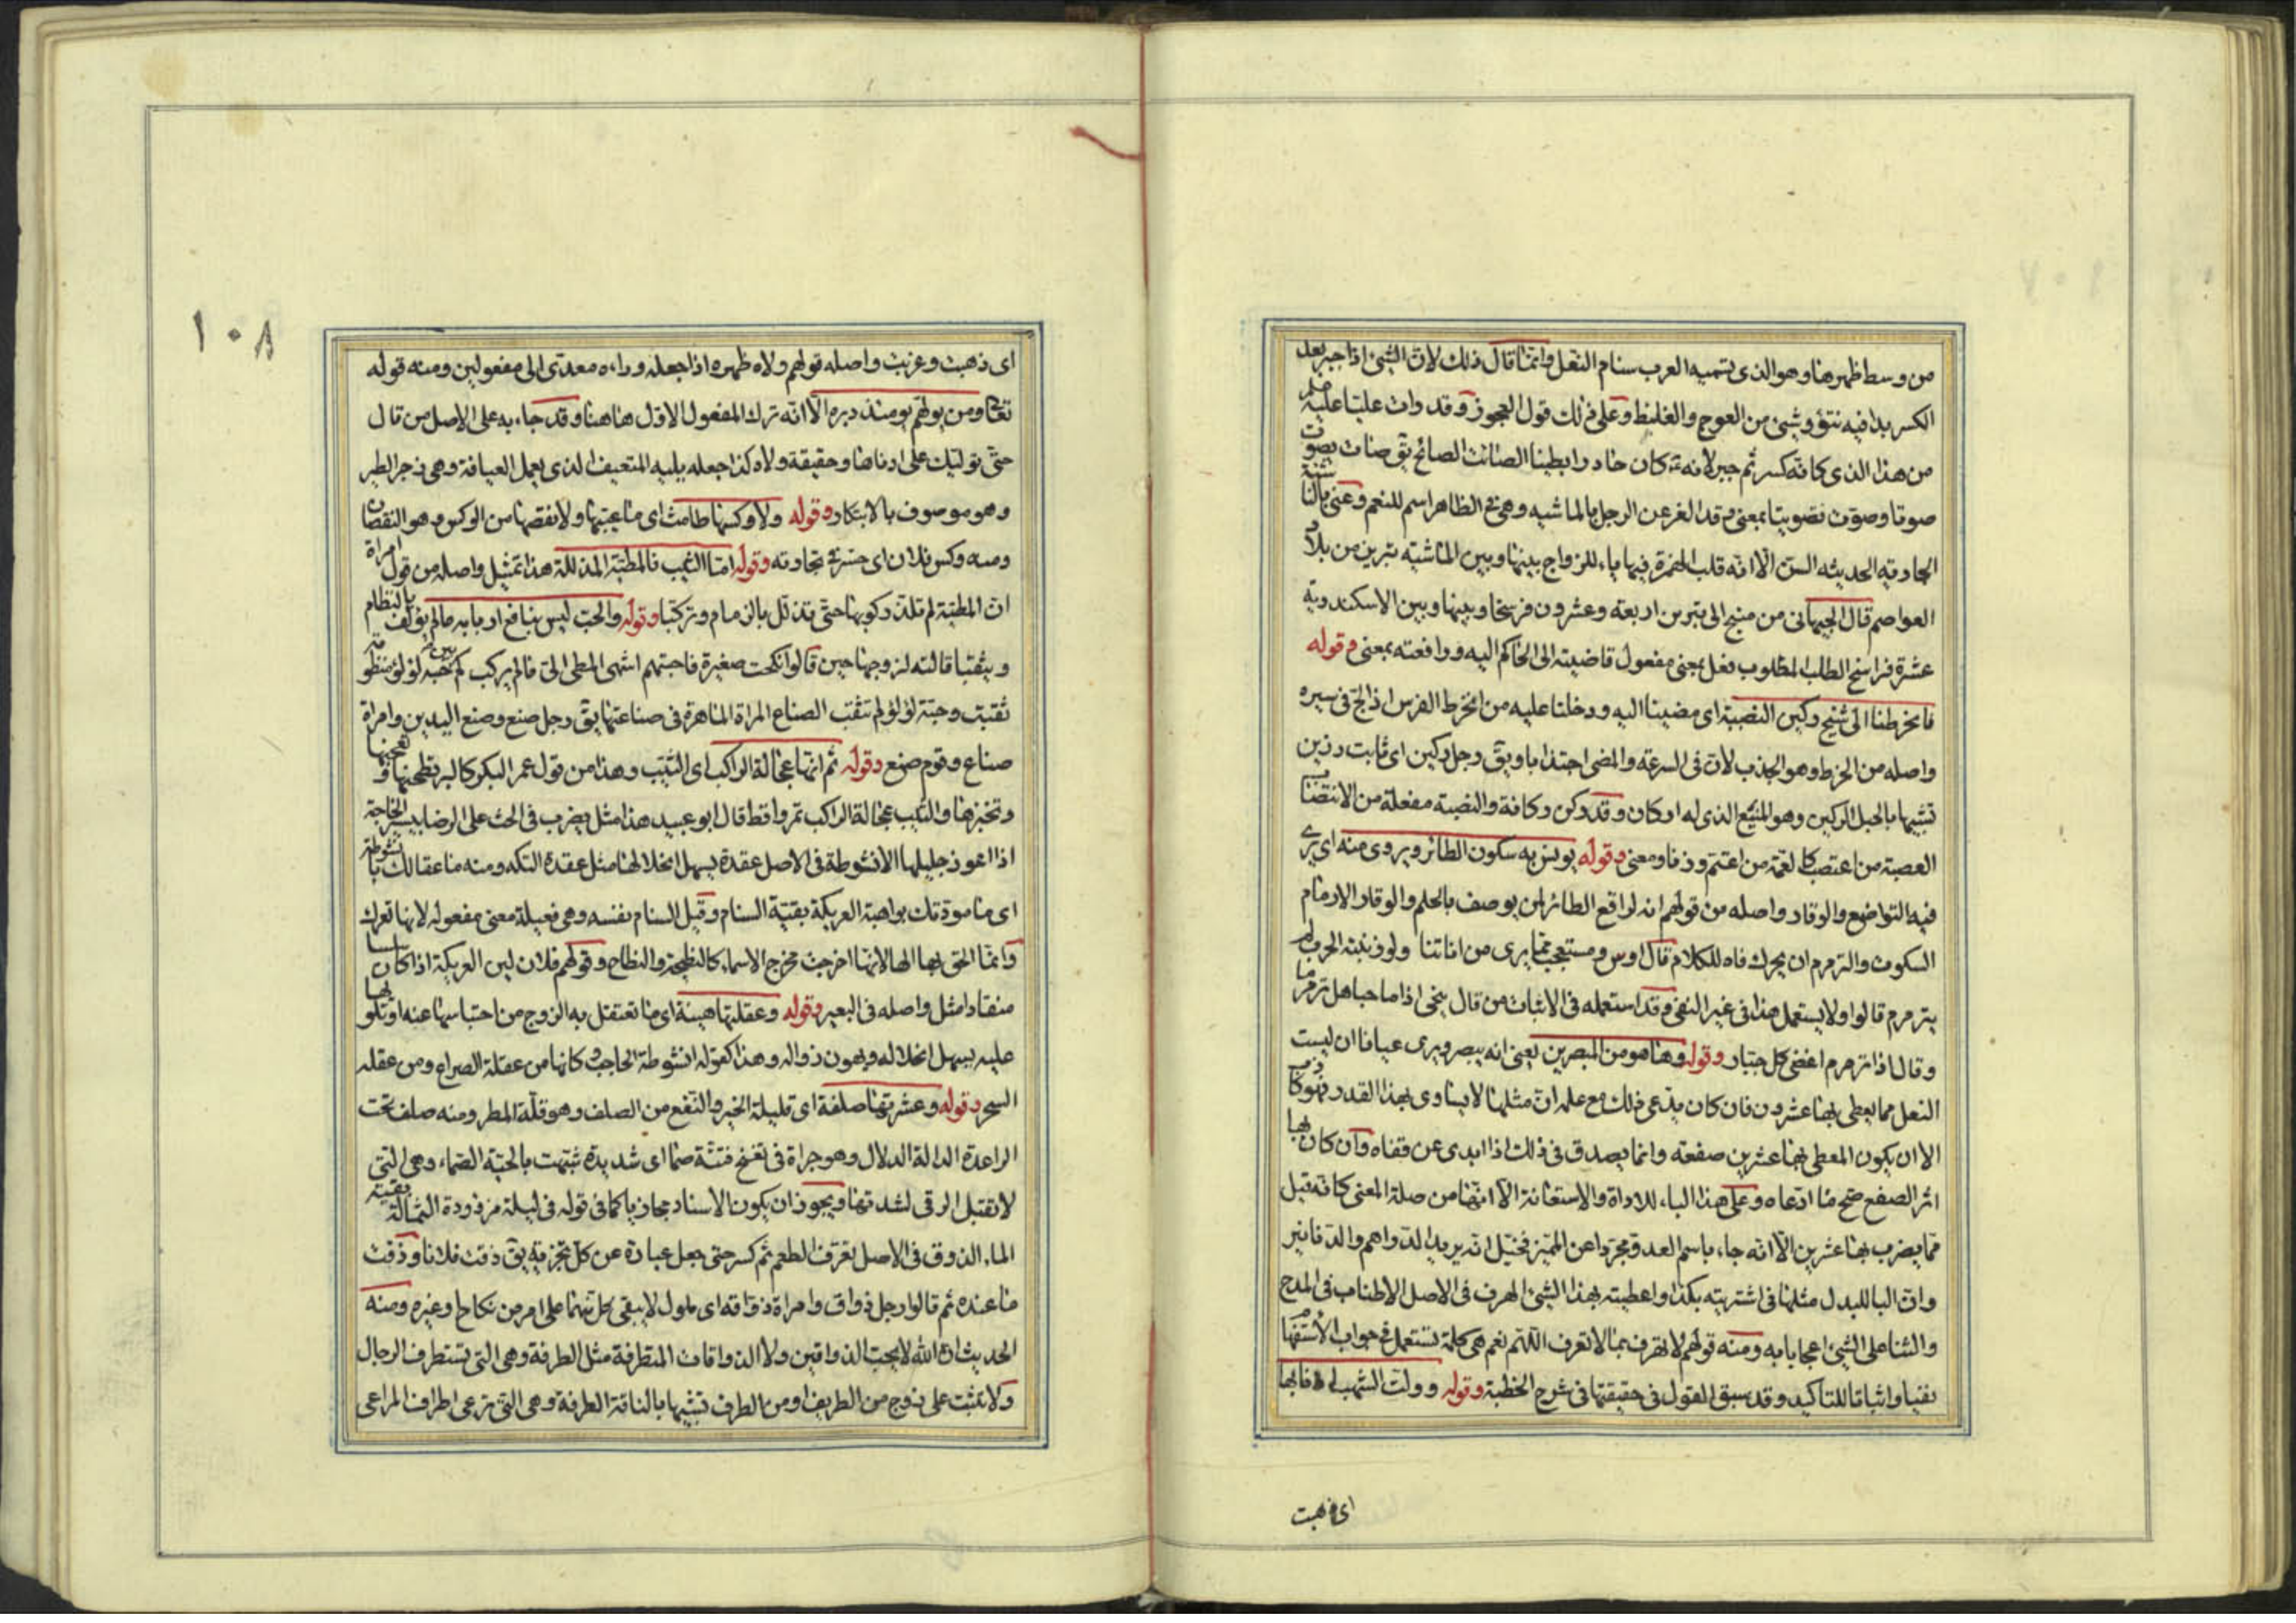 من وسط ظهرها وهو الذى تسميه العرب سنام النعل وانما قال ذلك لان الشئ اذا جبر بعد
الكسر بدا فيه نتؤ وشئ من العوج والغلظ وعلى ذلك قول العجوز وقد دات عليا عليه
من هذا الذى كانه كسر ثم جبر لانه كان حاد رابطينا الصائت الصائح يق صات يصوت
صوتا وصوت تصويتا بمعنى وقد الغز عن الرجل بالماشيه وهى فى الظاهر اسم للنعم وعنى بالناشئة
الجاريه الحديثه السن الا انه قلب الهمزة فيها ياء للزواج بينها وبين الماشيه تبرين من بلاد
العواصم قال الجيهانى من منبج الى تبرين اربعة وعشرون فرسخا وبينها وبين الاسكندرية
عشرة فراسخ الطلب المطلوب فعل بمعنى مفعول قاضيته الى الحاكم اليه ورافعته بمعنى وقوله
فانخرطنا الى شيخ ركين النصبة اى مضينا اليه ودخلنا عليه من انخرط الفرس اذا لج فى سيره
واصله من الخرط وهو الجذب لان فى السرعة والمضى اجتذابا ويق رجل ركين اى ثابت رزين
تشبيها بالجبل الركين وهو المنيع الذى له اركان وقد ركن ركانة والنصبة مفعلة من الانتصاب
العصبة من اعتصب كالعمة من اعتم وزنا ومعنى وقوله يونس به سكون الطائر ويروى منه اى يرى
فيه التواضع والوقار واصله من قولهم انه لواقع الطائر لمن يوصف بالحلم والوقار الارمام
السكوت والترمرم ان يحرك فاه للكلام قال اوس ومستعجب مما يرى من اناتنا ولو زبنته الحرب لم
يترمرم قالوا ولا يستعمل هذا فى غير النفى وقد استعمله فى الاثبات من قال بنحى اذا ما جاهل ترمرما
وقال اذا ترمرم اغضى كل جبار وقوله وها هو من المبصرين يعنى انه يبصر ويرى عيانا ان ليست
النعل مما يعطى بها عشرون فان كان يدعى ذلك مع علمه ان مثلها لا يساوى بهذا القدر فهو كاذب
الا ان يكون المعطى بها عشرين صفعة وانما يصدق فى ذلك اذا ابدى عن قفاه وان كان بها
اثر الصفع صح ما ادعاه وعلى هذا الباء للاداة والاستعانة الا انها من صلة المعنى كانه قيل
مما يضرب بها عشرين الا انه جاء باسم العدد مجردا عن المميز فخيل انه يريد الدراهم والدنانير
وان الباء للبدل مثلها فى اشتريته بكذا واعطيته بهذا الشئ الهرف فى الاصل الاطناب فى المدح
والثنا على الشئ اعجابا به ومنه قولهم لا تهرف بما لا تعرف اللهم نعم هى كلمة تستعمل فى جواب الاستفهام
نفيا واثباتا للتاكيد وقد سبق القول فى حقيقتها فى شرح الخطبة وقوله وولت الشهب لاذنابها
اى ذهبت
١٠٨
اى ذهبت وغربت واصله قولهم ولاه ظهره اذا جعله وراءه معدى الى مفعولين ومنه قوله
تعالى ومن يولهم يومئذ دبره الا انه ترك المفعول الاول هاهنا وقد جاء به على الاصل من قال
حتى توليك على ادناها وحقيقة ولاه كذا جعله يليه المتعيف الذى يعمل العيافة وهى زجر الطير
وهو موصوف بالابتكار وقوله ولا وكسها طامث اى ما عيبها ولا نقصها من الوكس وهو النقصان
ومنه وكس فلان اى خسر فى تجارته وقوله اما الثيب فالمطية المذللة هذا تمثيل واصله من قول امراة
ان المطية لم تلذ ركوبها حتى تذلل بالزمام وتركبا وقوله والحب ليس بنافع اربابه مالم يؤلف بالنظام
ويثقبا قالته لزوجها حين قالوا نكحت صغيرة فاجبتهم اشهى المطى الى مالم يركب كم بين حبة لؤلؤ منظومة
ثقبت وحبة لؤلؤ لم تثقب الصناع المراة الماهرة فى صناعتها يق رجل صنع وصنع اليدين وامراة
صناع وقوم صنع وقوله ثم انها عجالة الراكب اى الثيب وهذا من قول عمر البكر كالبر تطحنها وتعجنها
وتخبزها والثيب عجالة الراكب تمر واقط قال ابو عبيد هذا مثل يضرب فى الحث على الرضا بيسير الحاجة
اذا اعوز جليلها الانشوطة فى الاصل عقدة يسهل انحلالها مثل عقدة التكه ومنه ما عقالك بانشوطة
اى ما مودتك بواهية العريكة بقية السنام وقيل السنام نفسه وهى فعيلة معنى مفعولة لانها تعرك
وانما الحق بها الهاء لانها اخرجت مخرج الاسماء كالنطيحة والنطاح وقولهم فلان لين العريكة اذا كان سلسا
منقادا مثل واصله فى البعير وقوله وعقلتها هينة اى ما تعتقل به الزوج من احتباسها عنه او تلوبها
عليه يسهل انحلاله ويهون زواله وهذا كقوله انشوطة الحاجب وكانها من عقلة الصراع ومن عقله
السحر وقوله وعشرتها صلفة اى قليلة الخير والنفع من الصلف وهو قلة المطر ومنه صلف تحت
الراعدة الدالة الدلال وهو جراة فى تغنج فتنة صما اى شديدة شبهت بالحية الصماء وهى التى
لا تقبل الرقى لشدتها ويجوز ان يكون الاسناد مجازيا كما فى قوله فى ليلة مزؤدة الثمالة بقية
الماء الذوق فى الاصل تعرف الطعم ثم كسر حتى جعل عبارة عن كل تجزية يق ذقت فلانا وذقت
ما عنده ثم قالوا رجل ذواق وامراة ذواقة اى ملول لا يبقى كل منهما على امر من نكاح وغيره ومنه
الحديث ان الله لا يحب الذواقين ولا الذواقات المتطرفة مثل الطرفة وهى التى تستطرف الرجال
ولا تثبت على زوج من الطريف او من الطرف تشبيها بالناقة الطرفة وهى التى ترعى اطراف المراعى